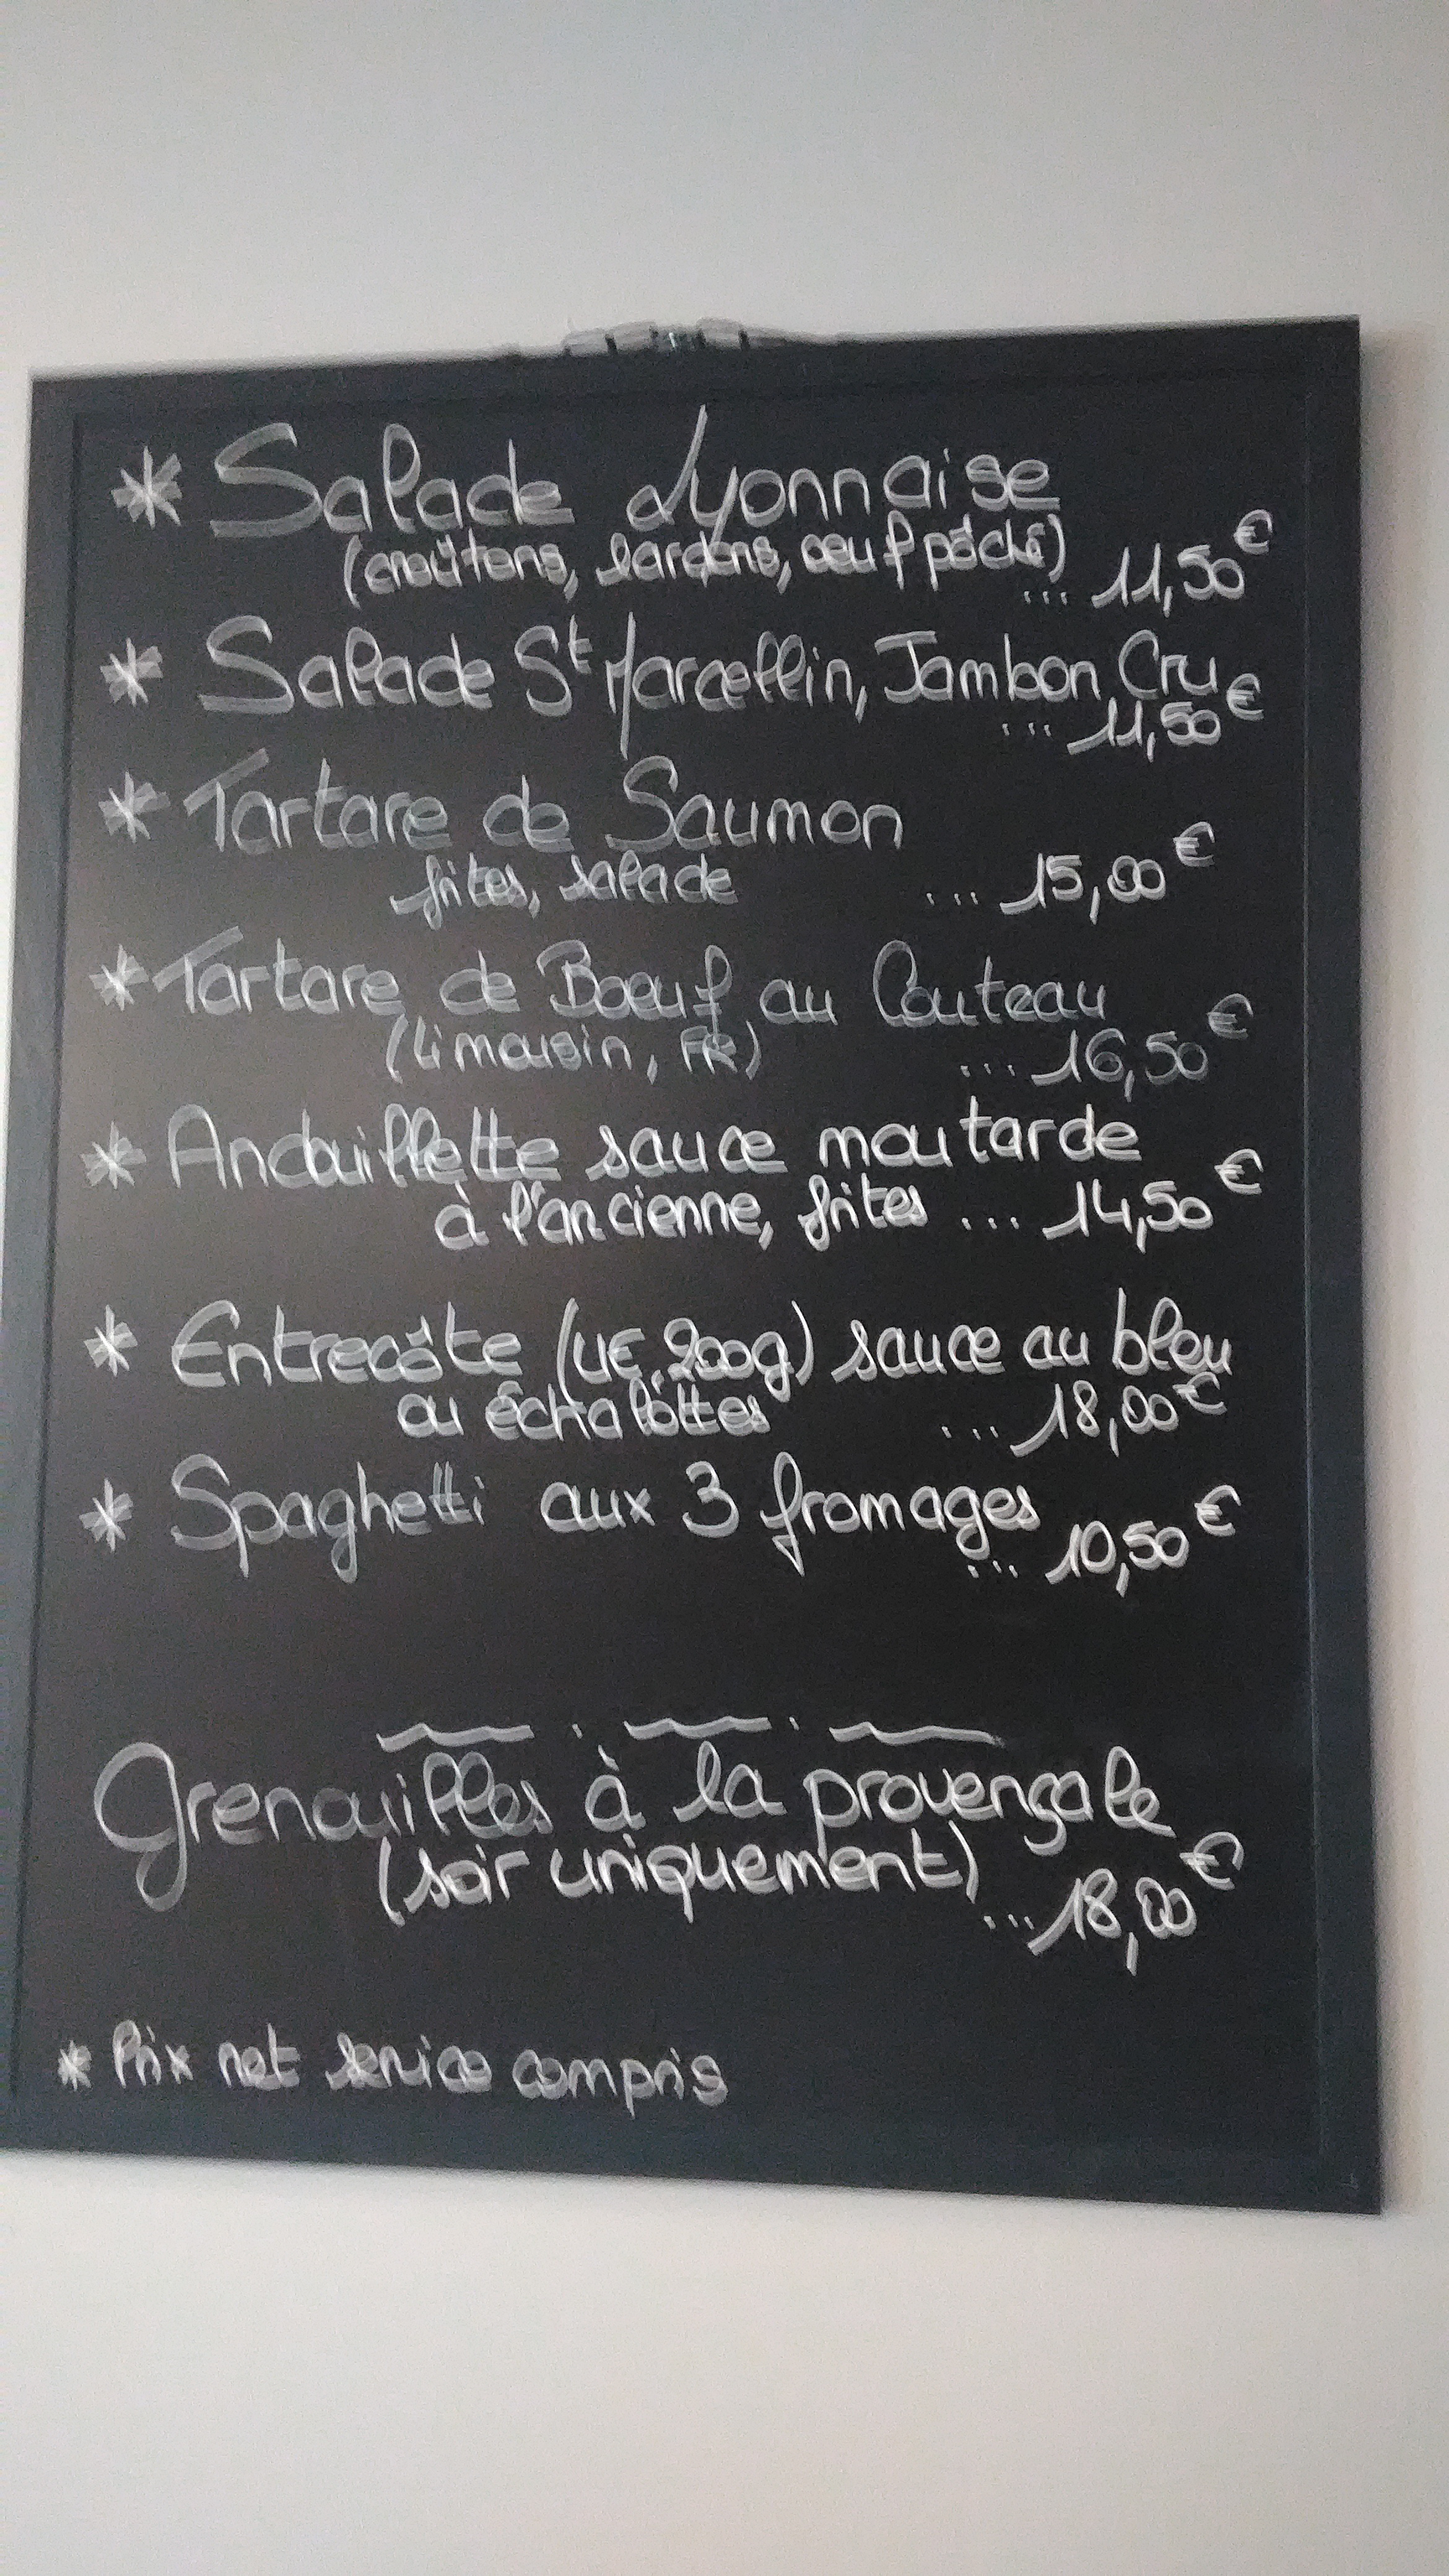 * Salade Lyonnaise
(croûtons, lardons, oeuf pôché) ... 11,50€
* Salade St Marcellin, Jambon Cru
... 11,50€
* Tartare de Saumon
frites, salade ... 15,00€
* Tartare de Boeuf au Couteau
(Limousin, FR) ... 16,50€
* Andouillette sauce moutarde
à l'ancienne, frites ... 14,50€
* Entrecôte (UE, 200g) sauce au bleu
ou échalottes ... 18,00€
* Spaghetti aux 3 fromages
... 10,50€
Grenouilles à la provençale
(soir uniquement) ... 18,00€
* Prix net service compris